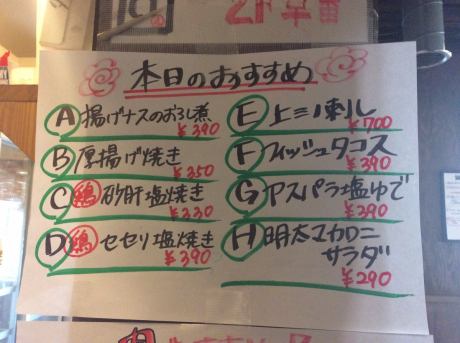 本日のおすすめ
Ⓐ揚げナスのおろし煮
¥390
Ⓑ厚揚げ焼き
¥350
Ⓒ鶏砂肝塩焼き
¥330
Ⓓ鶏セセリ塩焼き
¥390
Ⓔ上ミノ刺し
¥700
Ⓕフィッシュタコス
¥390
Ⓖアスパラ塩ゆで
¥290
Ⓗ明太マカロニ
サラダ
¥290